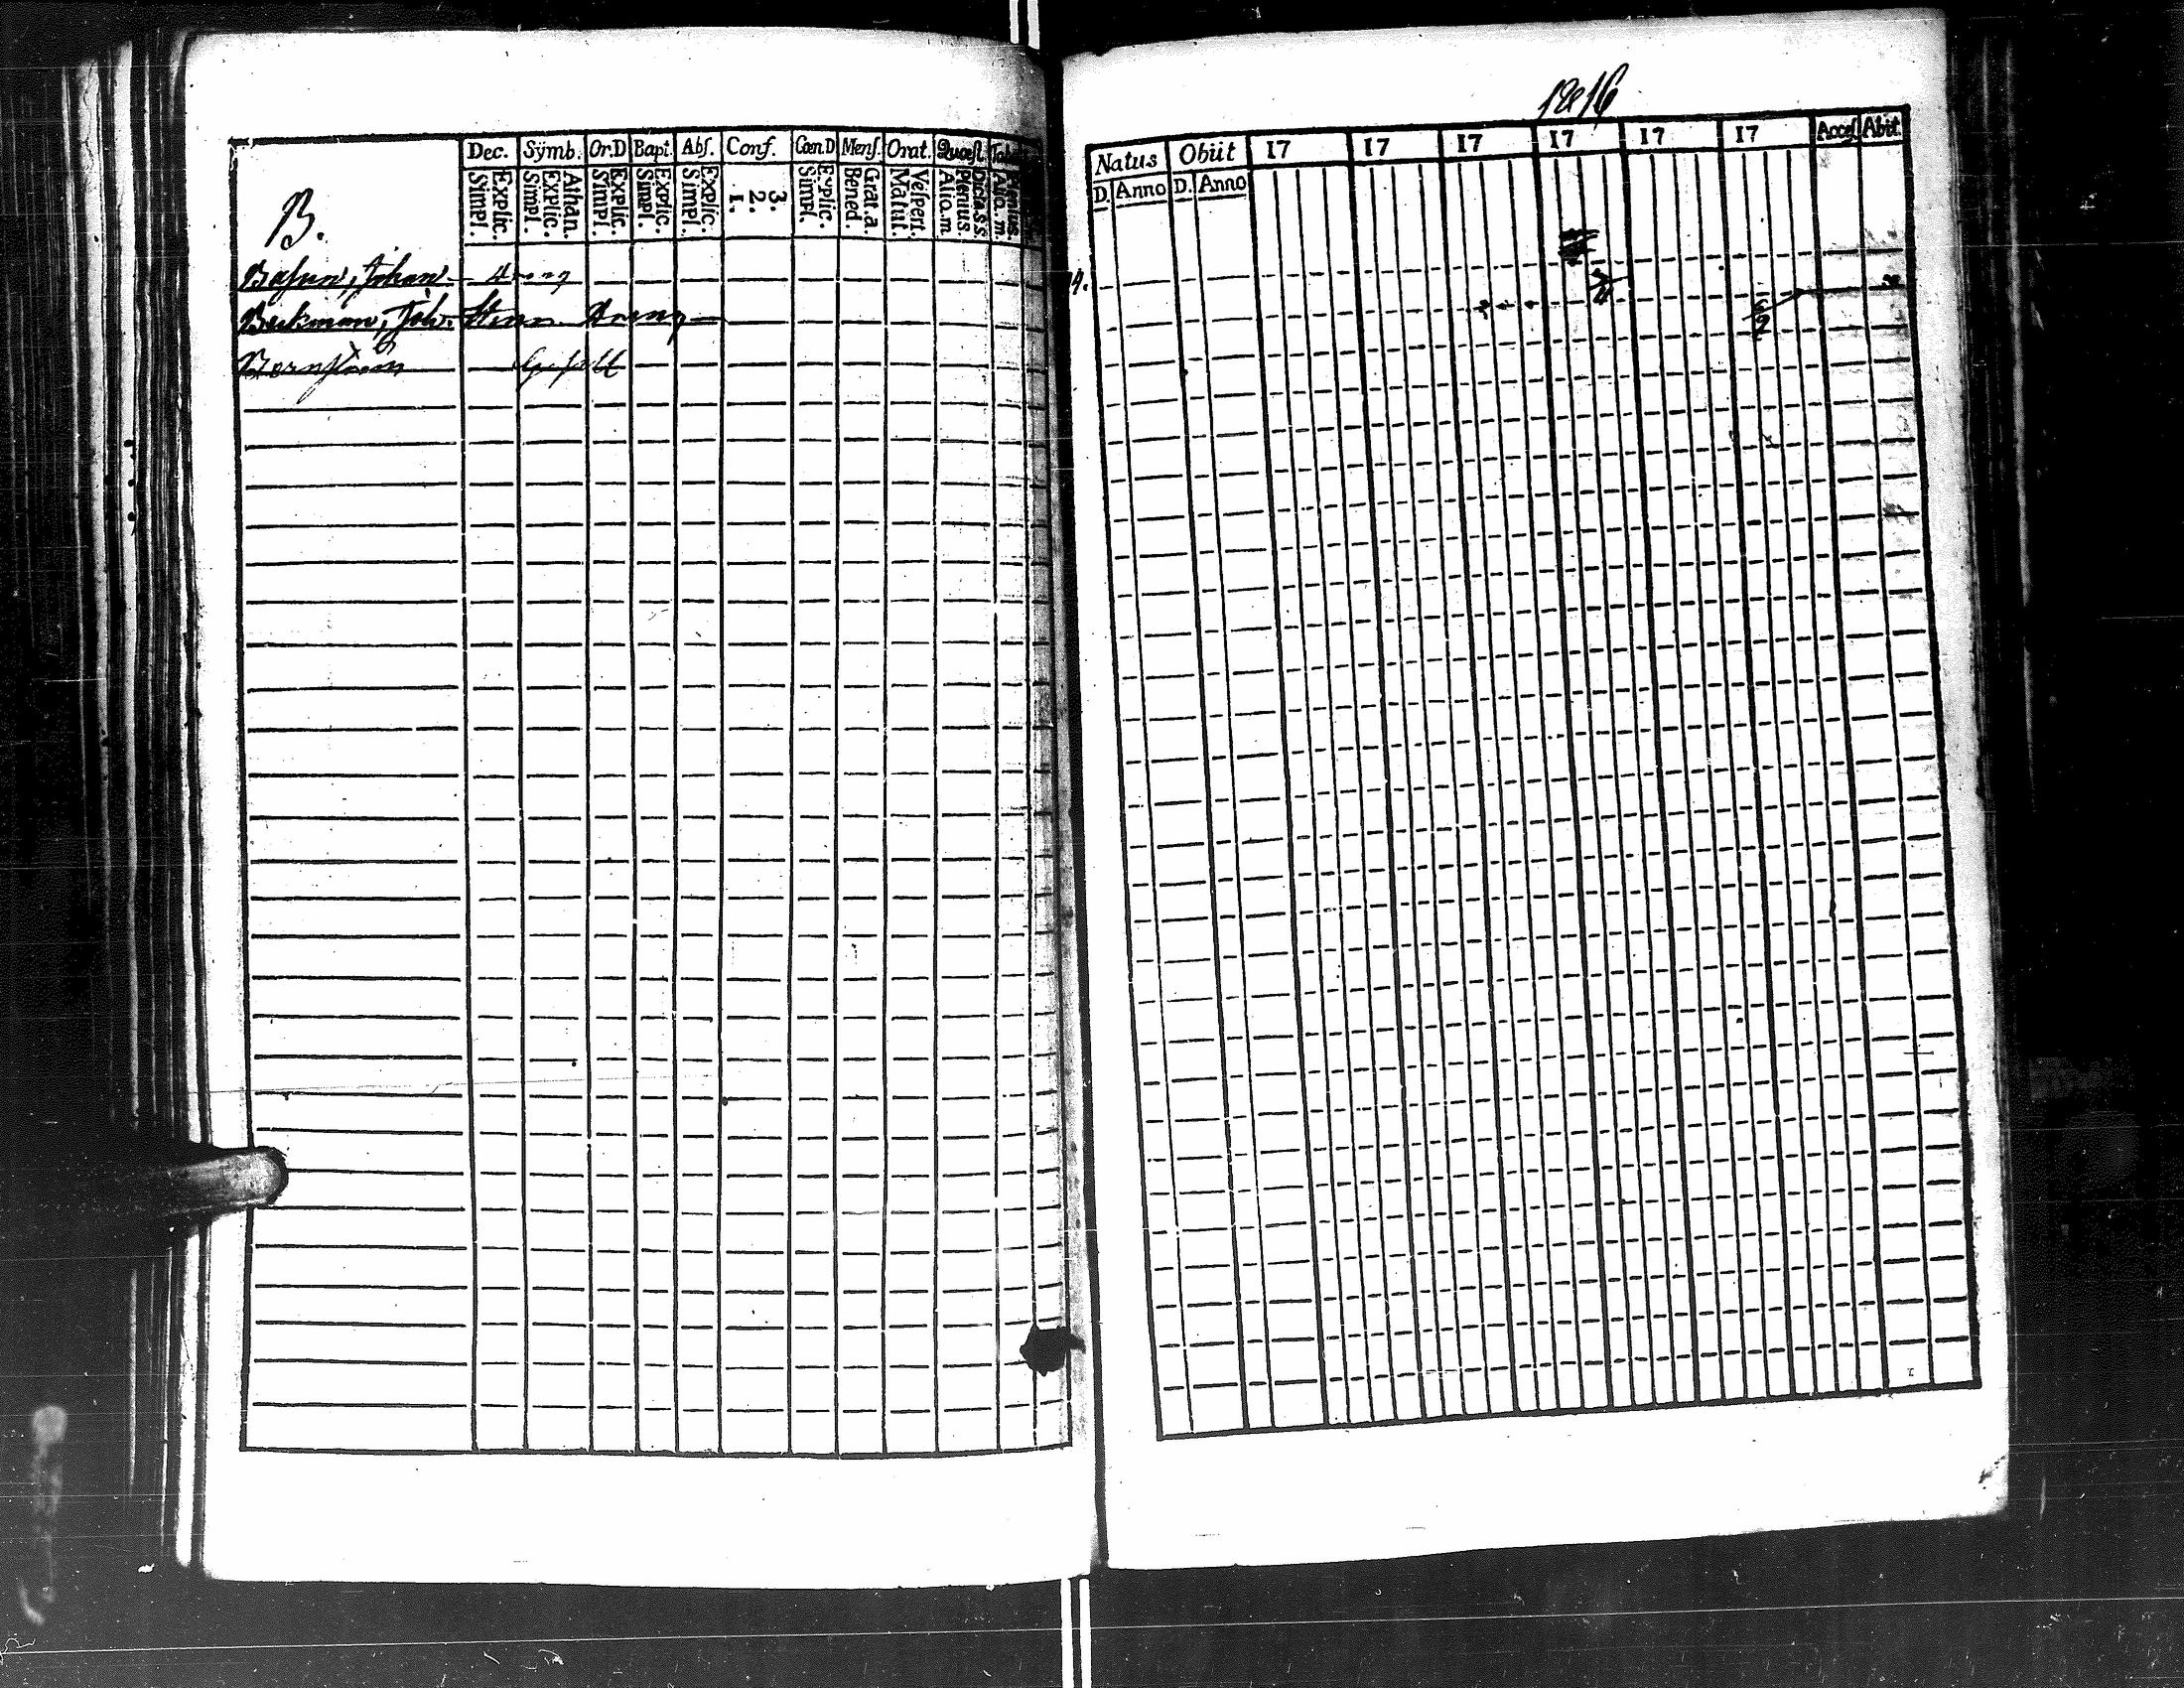 Dec. Sÿmb. Or.D Bapt. Abſ. Conf. Cœn.D Menſ. Orat. Quæſt.
Simpl. Explic. Simpl. Explic. Athan. Simpl. Explic. Simpl. Explic. Simpl. Explic. 1. 2. 3. Simpl. Explic. Bened. Grat.a. Matut. Veſpert. Alio.m Plenius. Dicta.s.s. Alio.m. Plenius.
B.
Johan
Beckman, Joh. Dreng
1816
Natus Obiit 17 17 17 17 17 17 Acceſ. Abit.
D. Anno D. Anno